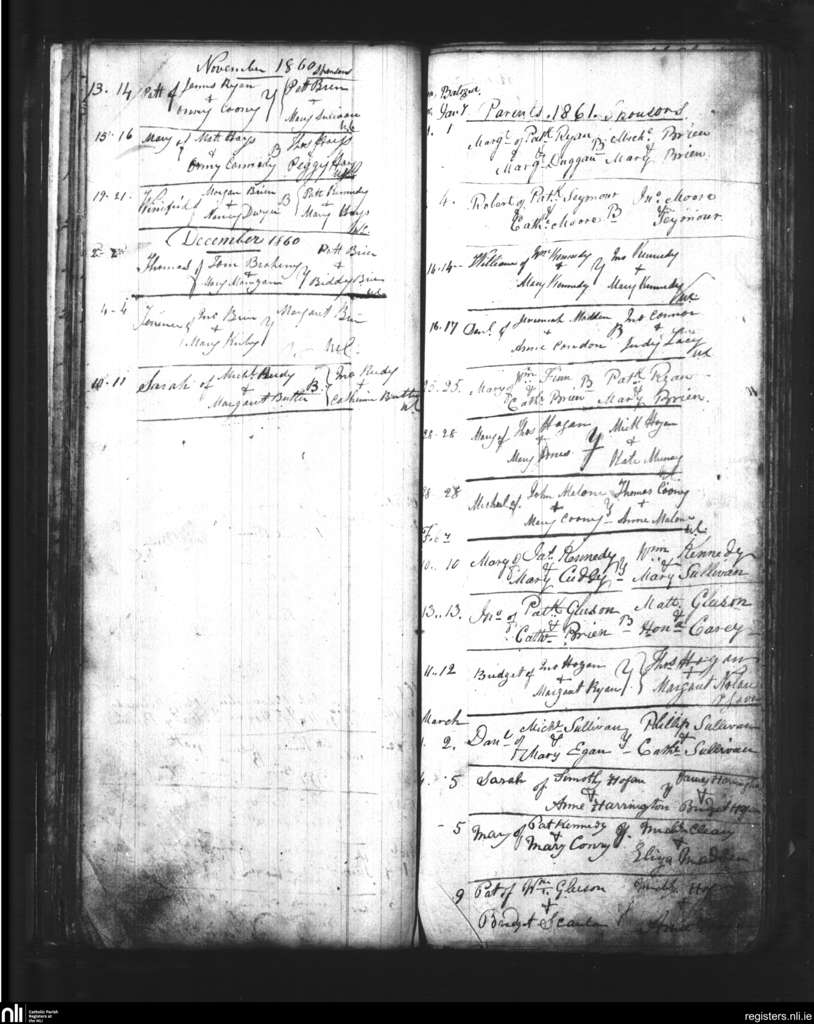 November 1860 Sponsors
13 - 14 Patt of James Ryan + Honry Coony Y Patt Brien + Mary Sulivan
15 - 16 Mary of Matt Hays Onny Connedy B Thos Hays Peggy Hays
19 - 21 Winifrid Morgan Brien + Nancy Dwyer B Patt Kennedy + Mary Hays
December 1860
Thomas of Tom Brohemy + Mary Mangan Y Patt Brien + Biddy Brien
4 - 4 of Jno Brien + Mary Kirby Y Margaret Brien
10 - 11 Sarah of Michl Reidy + Margaret Butler B Jno Reidy + Catherine
Baptze.
Jany Parents. 1861. Sponsors
1. 1 Margt. of Patk Ryan & Margt Duggan B Michl. Brien Mary Brien
4. Robert of Patk Seymour & Cathe Moore B Jno. Moore Seymour
14 - 14 William of Wm Kennedy + Mary Kennedy Y Jno Kennedy + Mary Kennedy
16 - 17 Danl. of Jeremiah Madden + Annie Condon B Jno Connor + Judy Lacy
25 - 25. Mary of Wm Finn & Cathe Brien B Patk Ryan Mary Brien.
28 - 28 Mary of Thos Hogan & Mary Y Mick Hogan & Kate Murray
28 - 28 Micheal of John Malone + Mary Coony Y Thomas Coony + Anne Malone
10 - 10 Mary of Pat. Kennedy & Mary Cudihy B Wm Kennedy & Mary Sullivan
13 .. 13. Jno of Patk Gleeson & Cathe Brien B Matt. Gleeson & Hona Carey
11 - 12 Bridget of Jno Hogan + Margaret Ryan Y Thos Hogan + Margaret Nolan
March
1. 2. Danl of Michl Sullivan & Mary Egan Y Phillip Sullivan Cathe Sullivan
4. 5 Sarah of Timothy Hogan & Anne Harrington Y James Harrington & Bridget Hogan
- 5 Mary of Pat Kennedy + Mary Conry Y Michl Cleary + Eliza Madden
9 Pat of Wm Gleeson + Bridget Scanlan Y
nli Catholic Parish Registers at the NLI
registers.nli.ie